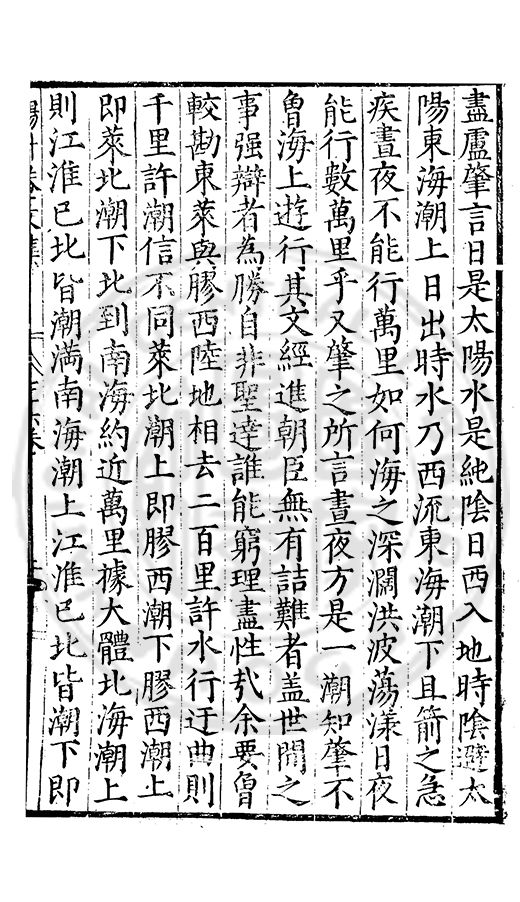 盡盧肇言日是太陽水是純陰日西入地時陰避太
陽東海潮上日出時水乃西流東海潮下且箭之急
疾晝夜不能行萬里如何海之深濶洪波蕩漾日夜
能行數萬里乎又肇之所言晝夜方是一潮知肇不
魯海上遊行其文經進朝臣無有詰難者盖世間之
事强辯者為勝自非聖達誰能窮理盡性㢤余要魯
較勘東萊與膠西陸地相去二百里許水行迂曲則
千里許潮信不同萊北潮上即膠西潮下膠西潮上
即萊北潮下北到南海約近萬里據大體北海潮上
則江淮已北皆潮満南海潮上江淮已北皆潮下即